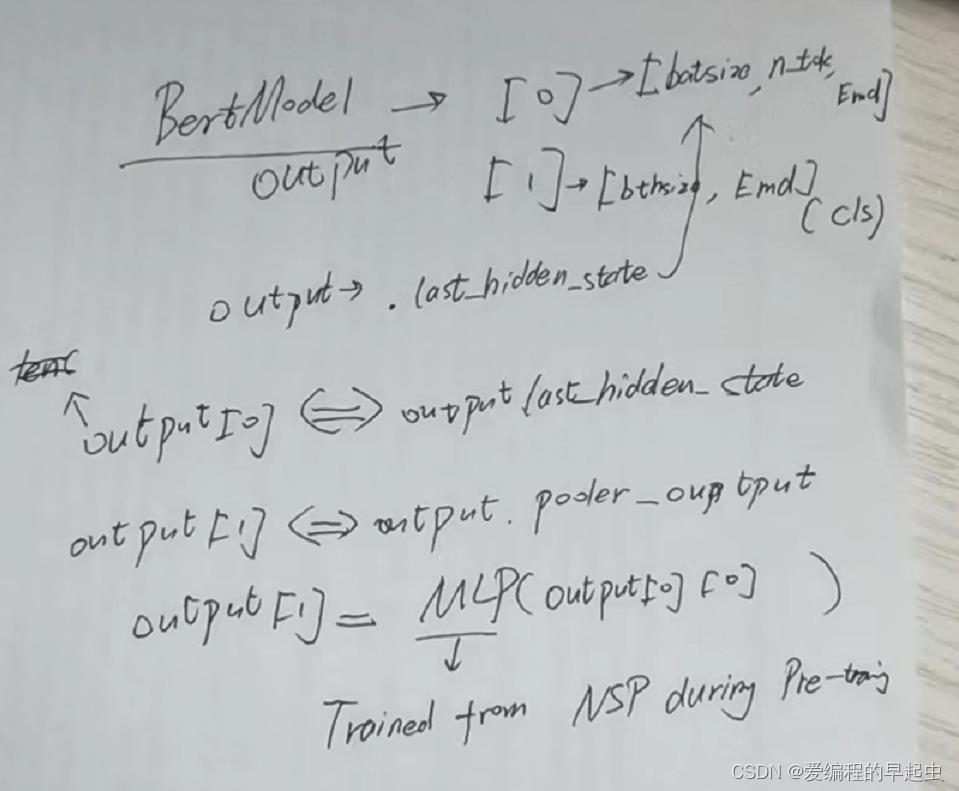 BertModel → [0] → [batsize, n_tok, Emd]
output [1] → [bthsize, Emd]
(cls)
output → . last_hidden_state
output[0] ⇔ output last_hidden_state
output[1] ⇔ output. pooler_output
output[1] = MLP(output[0][0])
↓
Trained from NSP during Pre-traing
CSDN @爱编程的早起虫